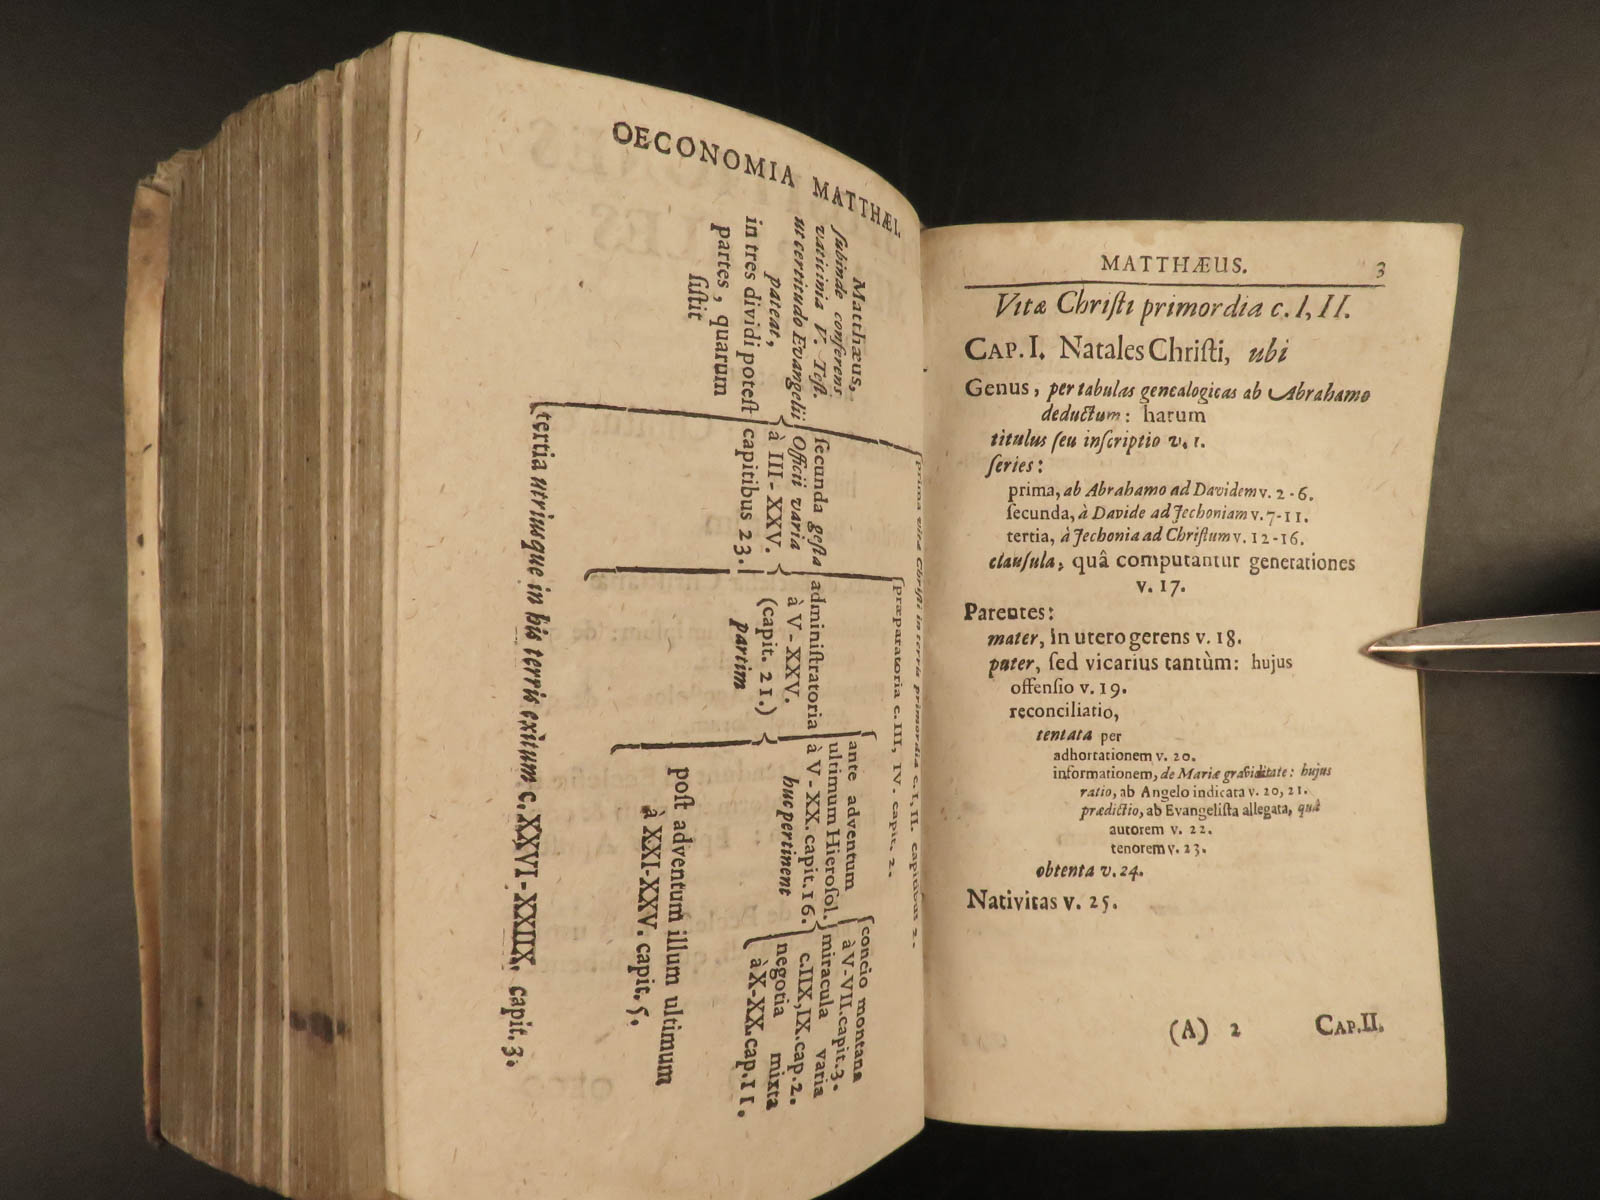 OECONOMIA MATTHÆI.
Matthæus,
ſubinde conferens
vaticinia V. Teſt.
ut certitudo Evangelii
pateat,
in tres dividi poteſt
partes, quarum
ſiſtit
prima vitæ Chriſti in terris primordia c. I, II. capitibus 2.
ſecunda geſta
Officii varia
à III-XXV.
capitibus 23.
præparatoria c. III, IV. capit. 2.
adminiſtratoria
à V-XXV.
(capit. 21.)
partim
ante adventum
ultimum Hieroſol.
à V-XX. capit. 16.
huc pertinent
concio montana
à V-VII. capit. 3.
miracula varia
c. IIX, IX. cap. 2.
negotia mixta
à X-XX. cap. 11.
poſt adventum illum ultimum
à XXI-XXV. capit. 5.
tertia utriusque in his terris exitum c. XXVI-XXIIX. capit. 3.
MATTHÆUS. 3
Vitæ Chriſti primordia c. I, II.
CAP. I. Natales Chriſti, ubi
Genus, per tabulas genealogicas ab Abrahamo
deductum: harum
titulus ſeu inſcriptio v. 1.
ſeries:
prima, ab Abrahamo ad Davidem v. 2-6.
ſecunda, à Davide ad Jechoniam v. 7-11.
tertia, à Jechonia ad Chriſtum v. 12-16.
clauſula, quâ computantur generationes
v. 17.
Parentes:
mater, in utero gerens v. 18.
pater, ſed vicarius tantùm: hujus
offenſio v. 19.
reconciliatio,
tentata per
adhortationem v. 20.
informationem, de Mariæ graviditate: hujus
ratio, ab Angelo indicata v. 20, 21.
prædictio, ab Evangeliſta allegata, quâ
autorem v. 22.
tenorem v. 23.
obtenta v. 24.
Nativitas v. 25.
(A) 2 CAP. II.